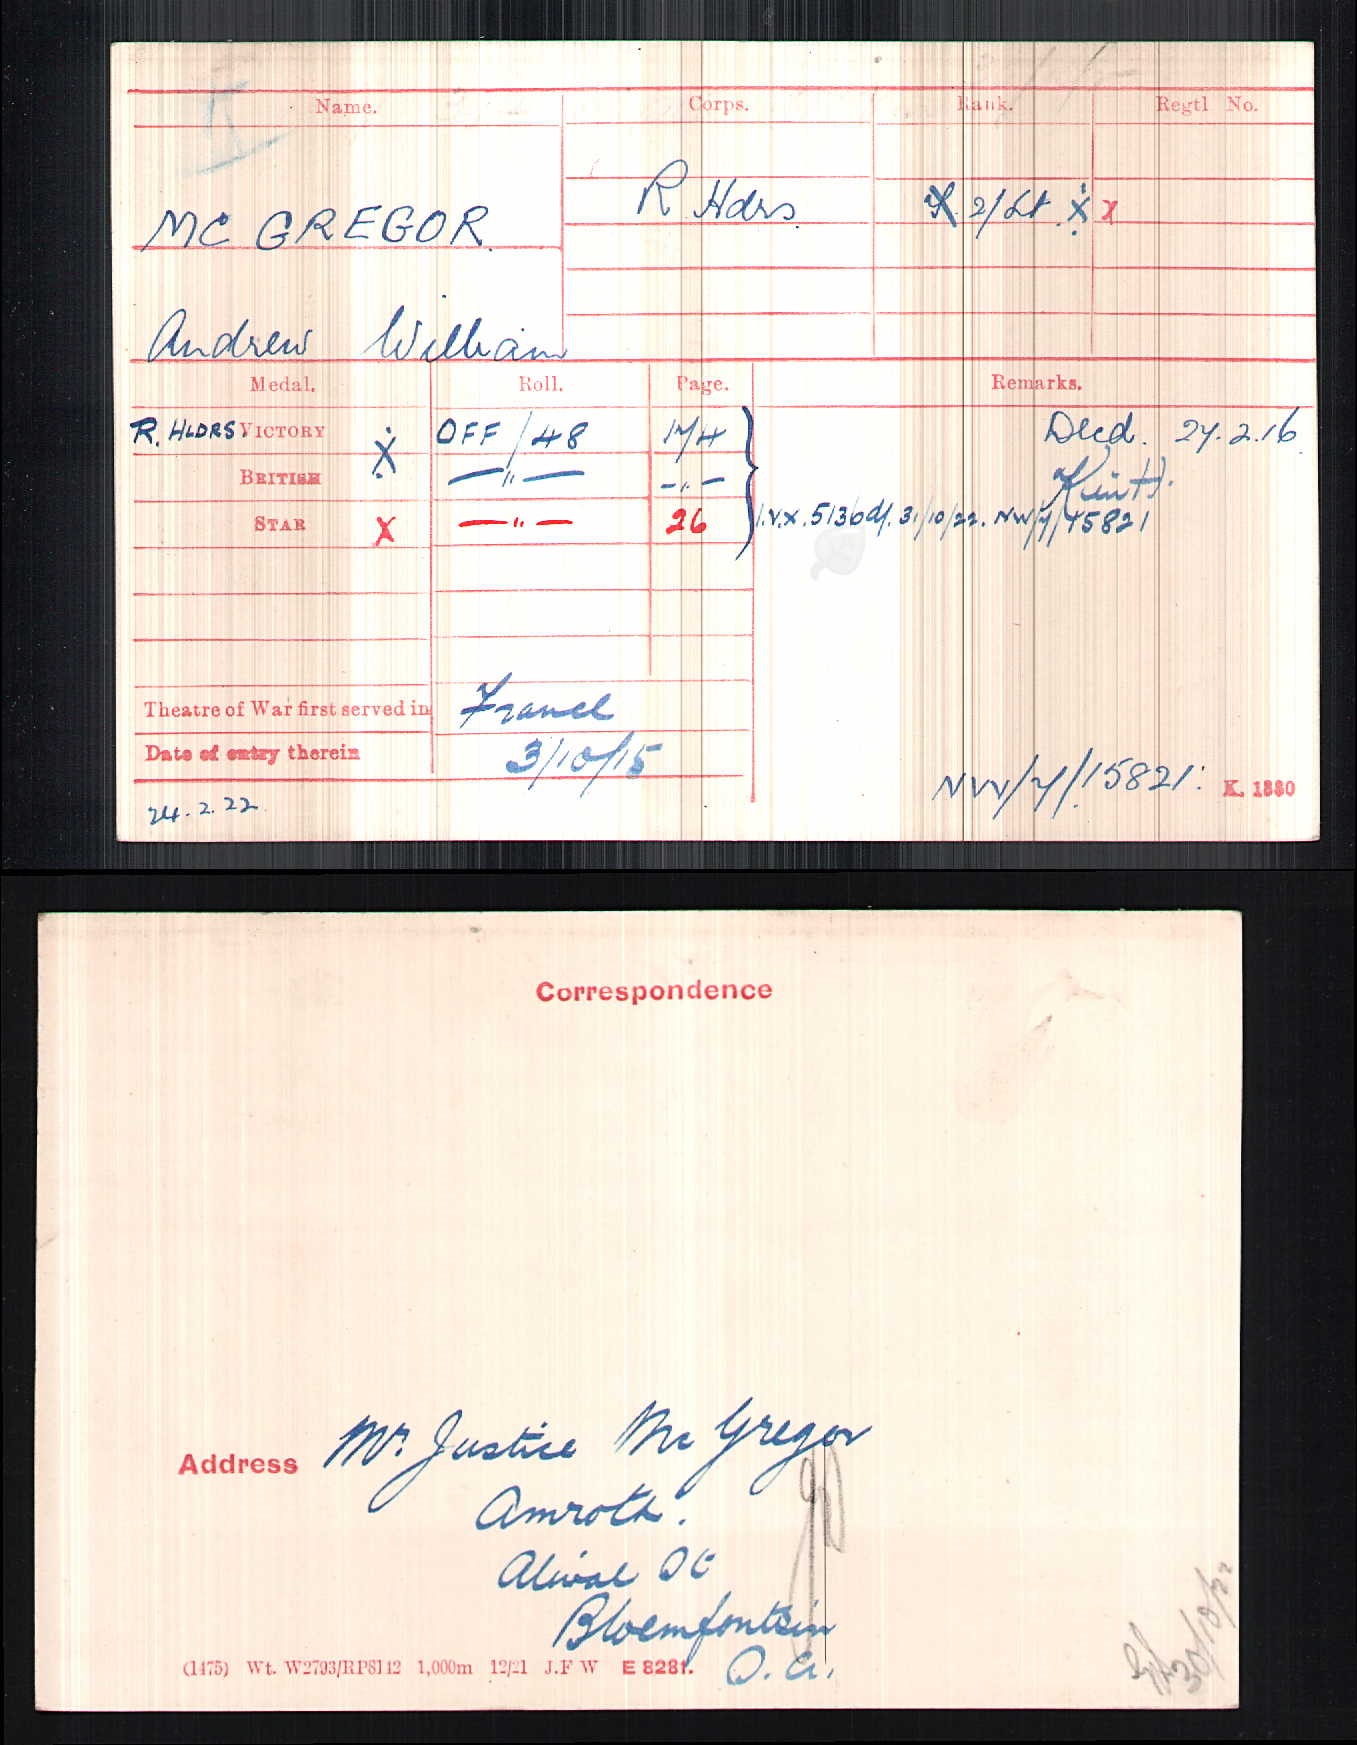 Name. Corps. Rank. Regtl No.
MC GREGOR. R Hdrs. 2/Lt X X
Andrew William
Medal. Roll. Page. Remarks.
R. HLDRS VICTORY X OFF/48 174 Decd. 27.2.16.
BRITISH —"— —"—
STAR X —"— 26 I.V.X. 5136 d/. 31/10/22. NW/7/15821
Theatre of War first served in France
Date of entry therein 3/10/15
24.2.22. NW/7/15821. K. 1380
Correspondence
Address Mr. Justice McGregor
Amroth.
Aliwal St
Bloemfontein
(1475) Wt. W2793/RP8142 1,000m 12/21 J.F W E 8281.
30/10/22